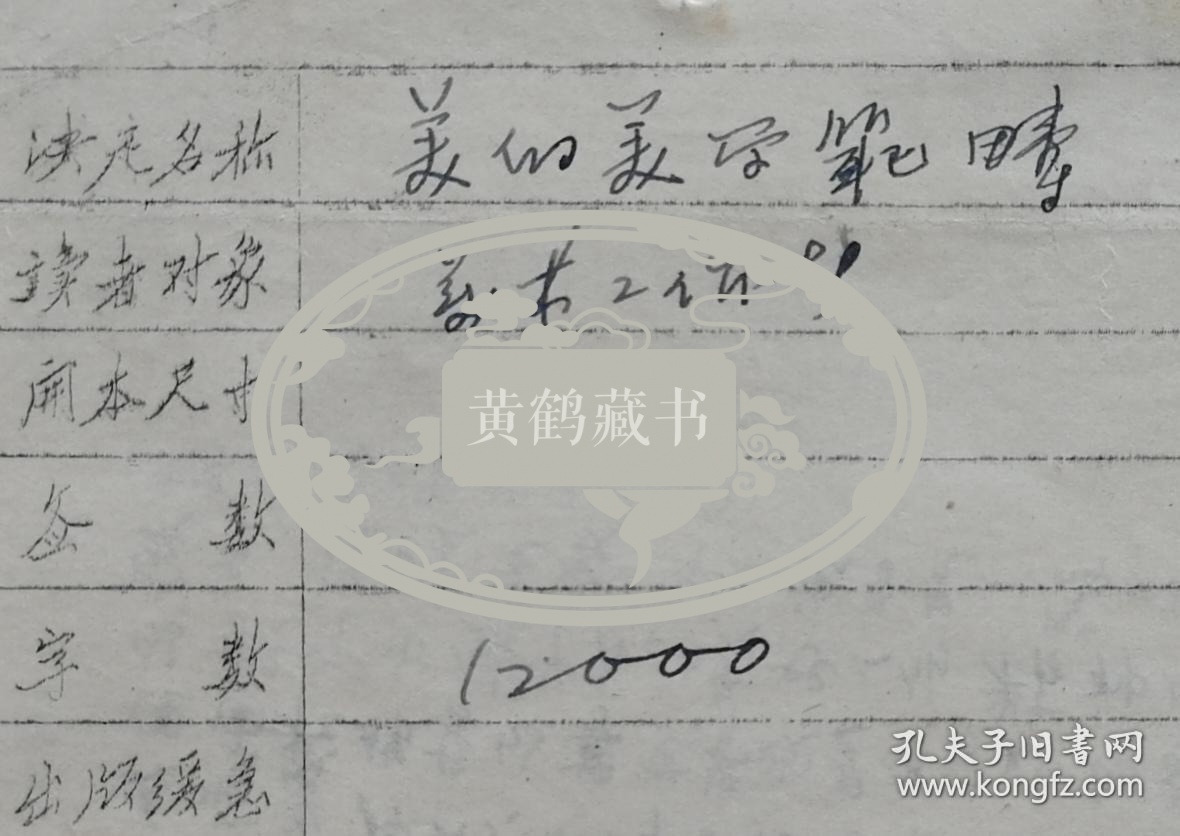 决定名称 美的美学範疇
读者对象 美术工作
開本尺寸
黄鹤藏书
数
字 数 12000
出版缓急
孔夫子旧書网
www.kongfz.com